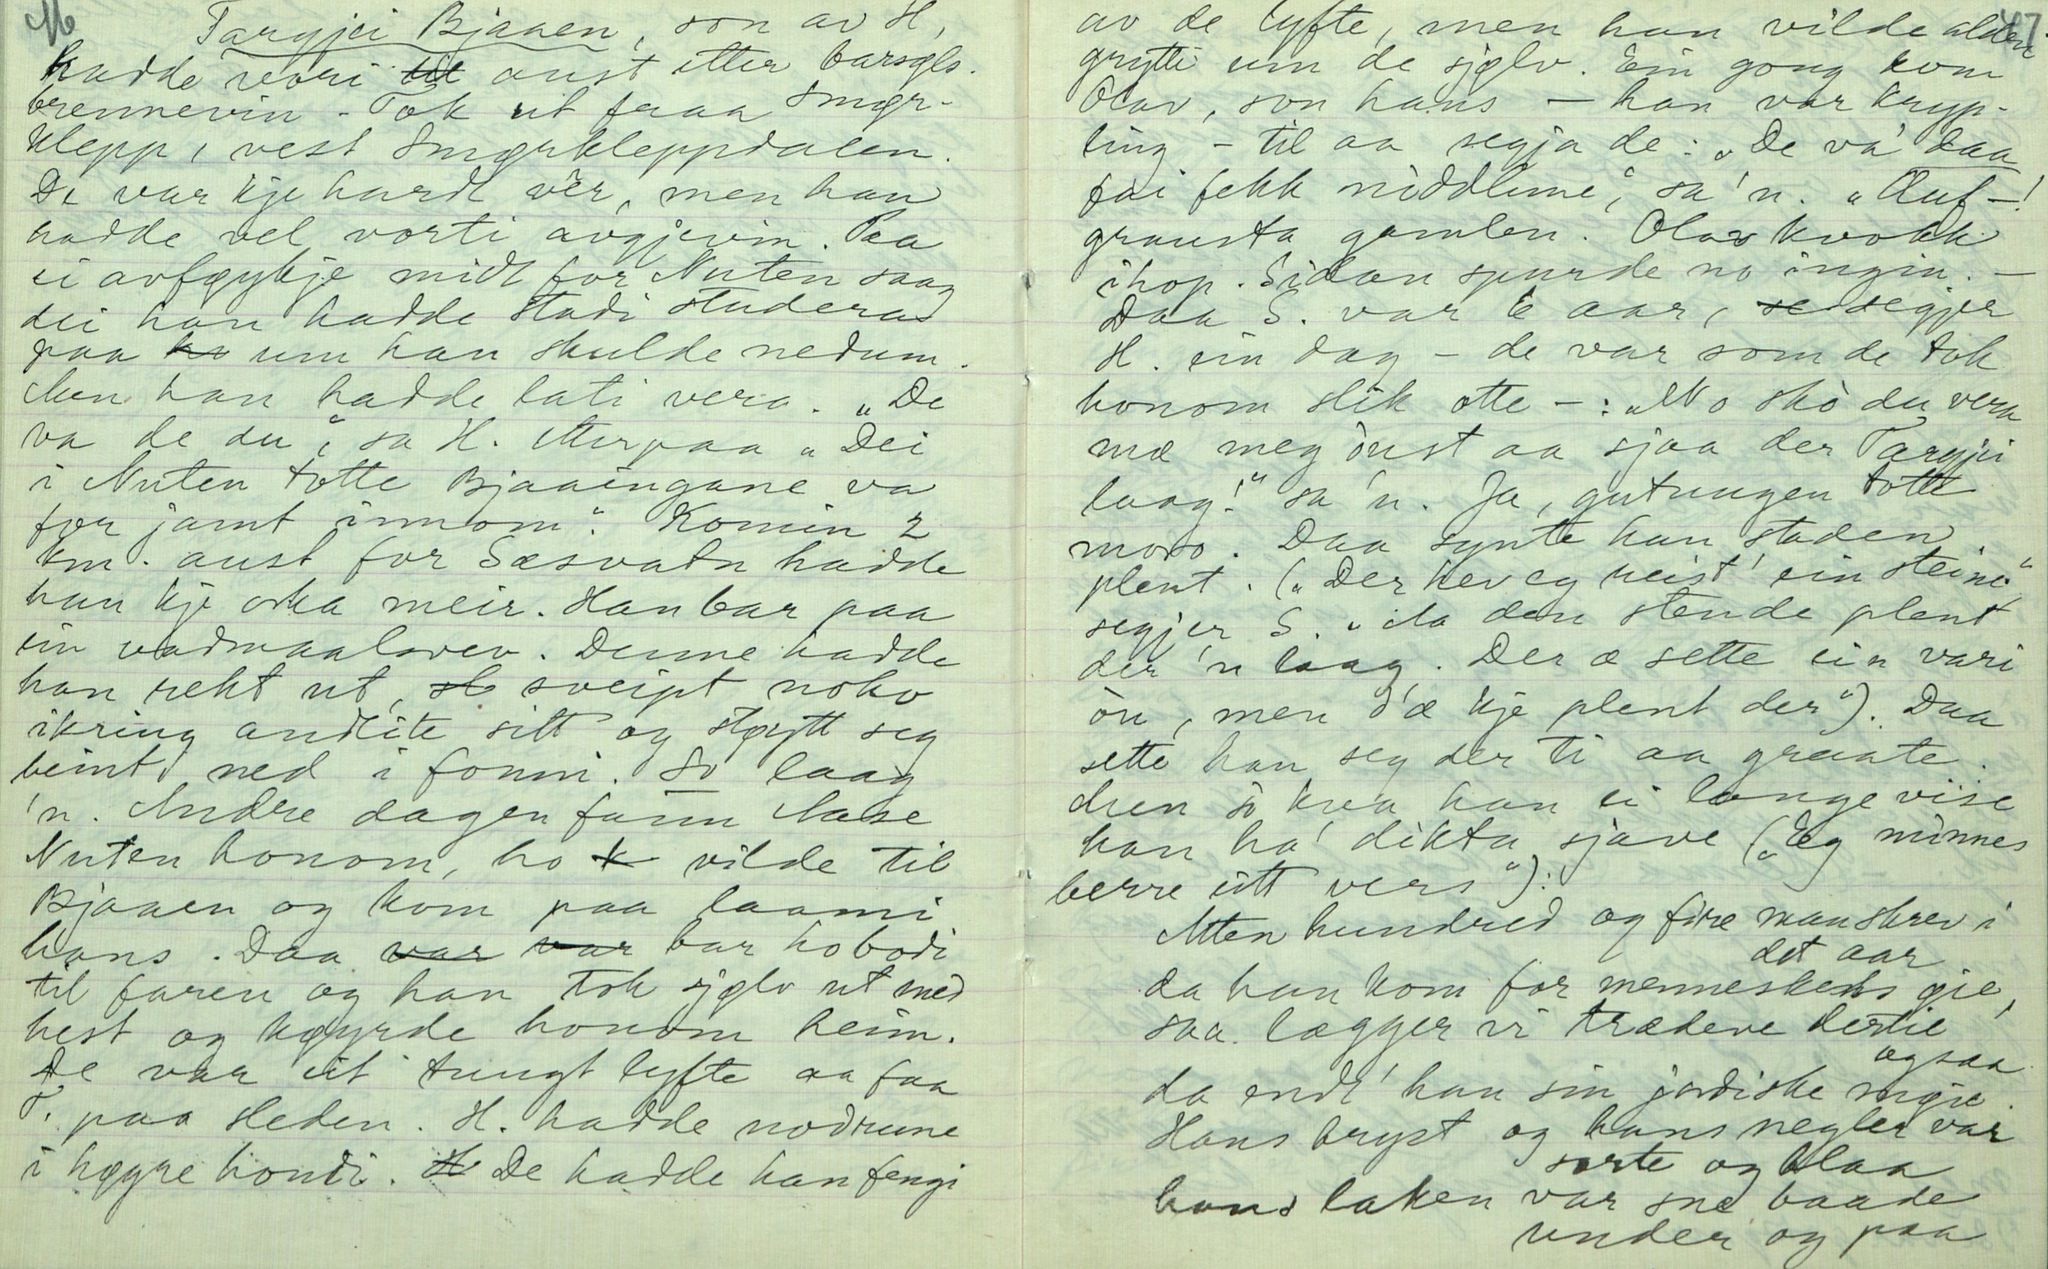 Targjei Bjaaen, son av H,
hadde vori til aust etter barsøls-
brennevin. Tok ut fraa Smør-
klepp, vest Smørkleppdalen.
De var kje hardt vêr, men han
hadde vel vorti avgjevin. Paa
ei avføykje midt for Nuten saag
dei han hadde stadi studera
paa um han skulde nedum.
Men han hadde lati vera. "De
va de du", sa H. etterpaa "Dei
i Nuten totte Bjaaingane va
for jamt innom". Komin 2
km. aust for Sæsvatn hadde
han kje orka meir. Han bar paa
ein vadmaalsvev. Denne hadde
han rekt ut, sveipt noko
ikring andlite sitt og støytt seg
beint ned i fonni. So laag
'n. Andre dagen fann Aase
Nuten honom, ho vilde til
Bjaaen og kom paa laami
hans. Daa var var bar ho bodi
til faren og han tok sjølv ut med
hest og køyrde honom heim.
De var eit tungt lyfte aa faa
T. paa sleden. H. hadde nodrune
i høgre hondi. De hadde han fengi
47
av de lyfte, men han vilde aldri
grytti um de sjølv. Ein gong kom
Olav, son hans – han var kryp-
ling – til aa segja de: "De va' daa
fai fekk niddlune", sa 'n. "Auf –!
grausta gamlen. Olav kvokk
ihop. Sidan spurde no ingin. –
Daa S. var 6 aar, segjer
H. ein dag – de var som de tok
honom slik otte –: "No sko du vera
mæ meg òust aa sjaa der Targjei
laag!" sa 'n. Ja, gutungen totte
moro. Daa synte han staden
plent. ("Der hev eg reist' ein steine"
segjer S. "Aa den stende plent
der 'n laag. Der æ sette ein vari
òu, men d'æ kje plent der"). Daa
sette han seg der ti aa graate.
dren so kva han ei lange vise
han ha' dikta sjave ("Eg minnes
berre eitt vers"):
Atten hundred og fire man skrev i
det aar
da han kom for menneskens øie,
saa lægger vi trædeve dertil
ogsaa
da endt' han sin jordiske møie.
Hans bryst og hans negler var
sorte og blaa
hans laken var sne baade
under og paa